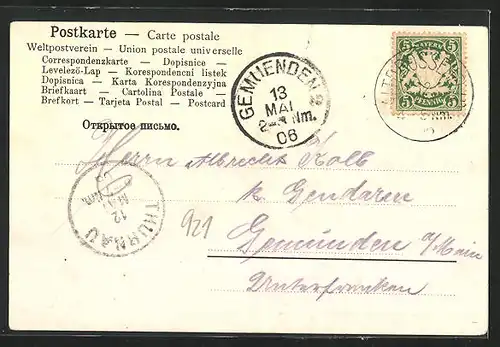 Postkarte — Carte postale
Weltpostverein — Union postale universelle
Correspondenzkarte — Dopisnice —
Levelező-Lap — Korespondencni listek
Dopisnica — Karta Korespondenzyjna
Briefkaart — Cartolina Postale —
Brefkort — Tarjeta Postal — Postcard
Открытое письмо.
GEMUENDEN 2
13
MAI
2-3 Nm.
06
BAYERN
5 5
PFENNIG
5 5
THURNAU
12
MAI
Nm.
Herrn Albrecht Kolb
k. Gendarm
921
Gemünden a/Main
Unterfranken